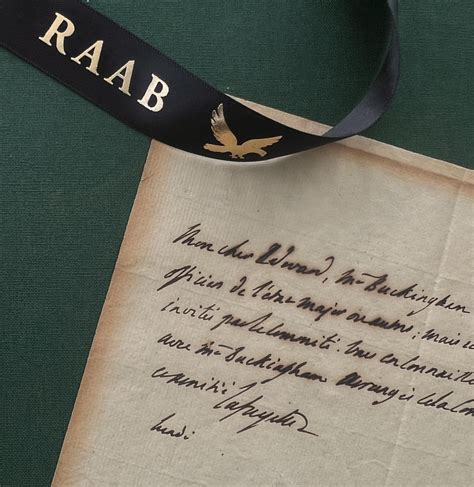 RAAB
Mon cher Edward, Mr Buckingham
officier de l'état major ou autre; mais ic
invités par le Comité. Vous en connaitr
avec Mr Buckingham. arrangés cela
comité
Lafayette
lundi